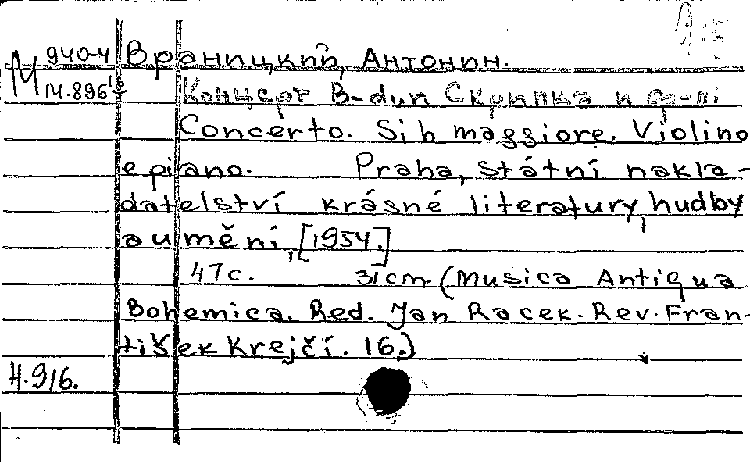 М 940-4 Враницкий, Антонин.
М.896
Концерт B-dur Скрипка и ф-пі
Concerto. Si b maggiore. Violino
e piano. Praha, Státní nakla-
datelství krásné literatury, hudby
a umění, [1954.]
47 с. 31 cm. (Musica Antiqua
Bohemica. Red. Jan Racek. Rev. Fran-
tišek Krejčí. 16.)
4.916.